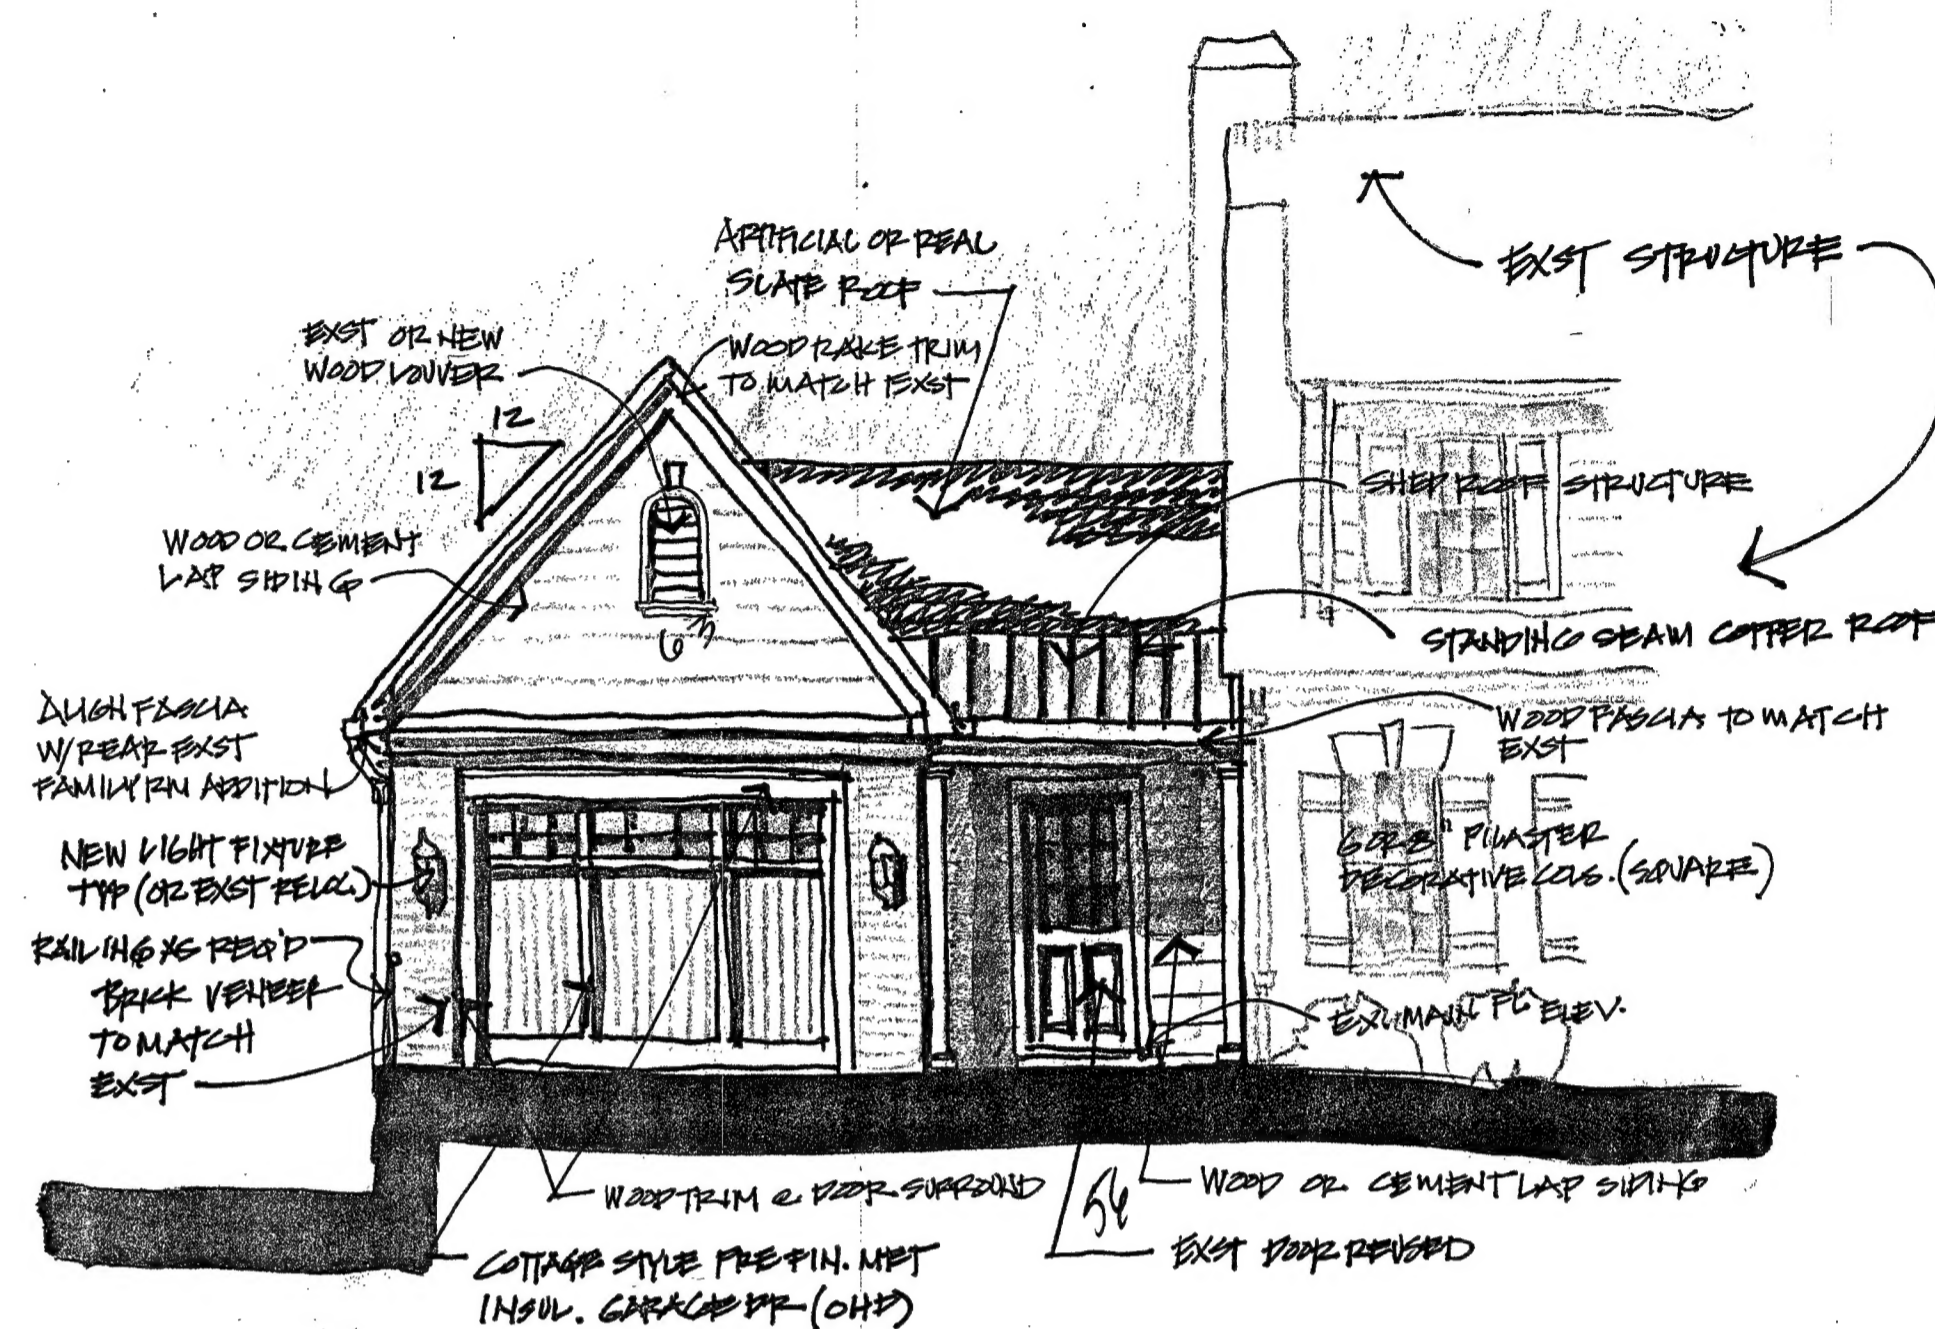 ARTIFICIAL OR REAL
SLATE ROOF
EXST STRUCTURE
EXST OR NEW
WOOD LOUVER
WOOD RAKE TRIM
TO MATCH EXST
12
12
SHED ROOF STRUCTURE
WOOD OR CEMENT
LAP SIDING
STANDING SEAM COPPER ROOF
ALIGN FASCIA
W/REAR EXST
FAMILY RM ADDITION
WOOD FASCIA TO MATCH
EXST
NEW LIGHT FIXTURE
TYP (OR EXST RELOC.)
6 OR 8" PILASTER
DECORATIVE COLS. (SQUARE)
RAILING AS REQ'D
BRICK VENEER
TO MATCH
EXST
MAIN FL ELEV.
WOOD TRIM @ DOOR SURROUND
56
WOOD OR CEMENT LAP SIDING
EXST DOOR REUSED
COTTAGE STYLE PREFIN. MET
INSUL. GARAGE DR (OHD)